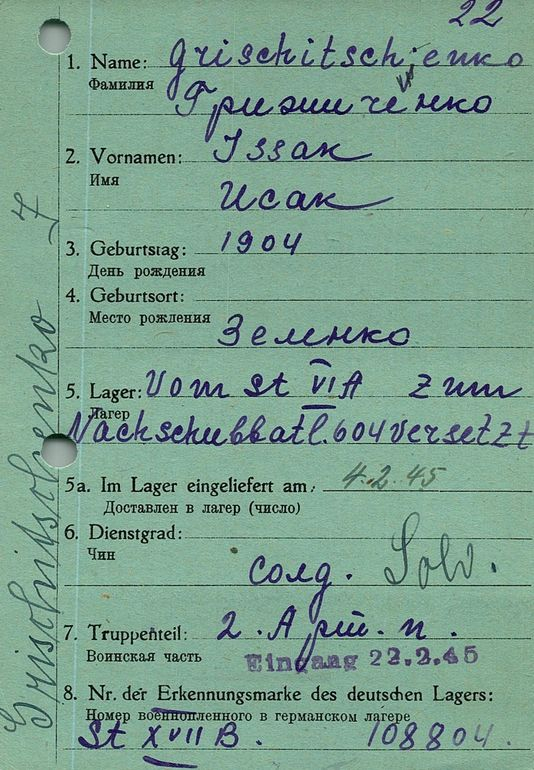 22
1. Name: Grischitschenko
Фамилия
Гришиченко
2. Vornamen: Issak
Имя
Исак
3. Geburtstag: 1904
День рождения
4. Geburtsort:
Место рождения
Зеленко
5. Lager: Vom St VI A zum
Лагер
Nachschubbatl. 604 versetzt
5a. Im Lager eingeliefert am: 4.2.45
Доставлен в лагер (число)
6. Dienstgrad:
Чин
солд. Sold.
7. Truppenteil: 2. Арт. п.
Воинская часть
Eingang 22.2.45
8. Nr. der Erkennungsmarke des deutschen Lagers:
Номер военнопленного в германском лагере
St XVII B. 108804.
Grischitschenko J